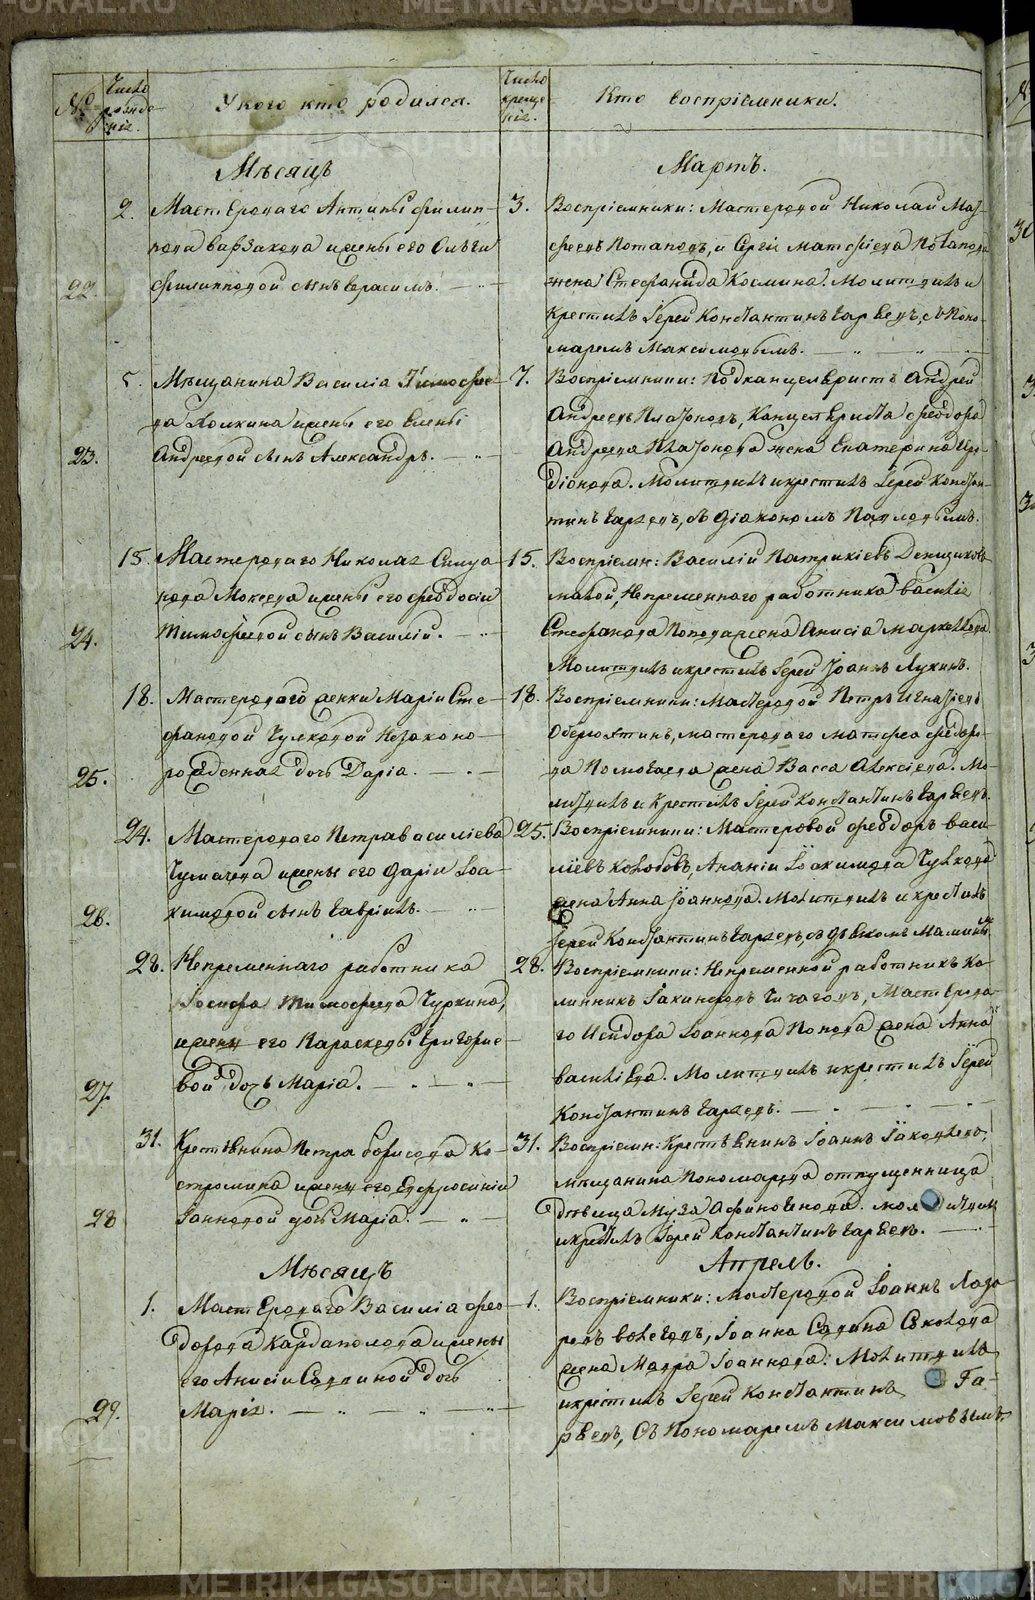 №
Число рожде-
нія.
У кого кто родился.
Число креще-
нія.
Кто воспріемники.
Мѣсяцъ
Мартъ.
22.
2.
Мастероваго Антипы Филип-
пова Варзакова и жены его Ольги
Филипповой сынъ Герасимъ.
3.
Воспріемники: Мастеровой Николай Мат-
феевъ Потаповъ, и Сергія Матфіева Потапова
жена Стефанида Космина. Молитвилъ и
крестилъ Іерей Константинъ Гаряевъ, съ Поно-
маремъ Максимовымъ.
23.
5.
Мѣщанина Василіа Тимофее-
ва и жены его Елены
Андреевой сынъ Александръ.
7.
Воспріемники: Подканцеляристъ Андрей
Андреевъ Платоновъ, Канцеляриста Феодора
Андреева Платонова жена Екатерина Иро-
діонова. Молитвилъ и крестилъ Іерей Констан-
тинъ Гаряевъ, съ Діакономъ Павловымъ.
24.
15.
Мастероваго Николая Силуа-
нова Мокеева и жены его Феодосіи
Тимофеевой сынъ Василій.
15.
Воспріемн: Василій Патрикіевъ Денщиковъ
Непременнаго работника Василія
Стефанова Попова жена Анисіа Маркелова
Молитвилъ и крестилъ Іерей Іоаннъ Лукинъ.
25.
18.
Мастероваго женки Маріи Сте-
фановой Чулковой Незаконо-
рожденная дочь Даріа.
18.
Воспріемники: Мастеровой Петръ Игнатіевъ
Оберюхтинъ, мастероваго Матфеа Феодоро-
ва жена Васса Алексіева. Мо-
литвилъ и Крестилъ Іерей Константинъ Гаряевъ.
26.
24.
Мастероваго Петра Василіева
Чумачева и жены его Даріи Іоа-
кимовой сынъ Гавріилъ.
25.
Воспріемники: Мастеровой Феодоръ Васи-
ліевъ Колобовъ, Ананіи Іоакимова Чулкова
жена Анна Іоаннова. Молитвилъ и крестилъ
Іерей Константинъ Гаряевъ, съ дьякомъ Маминымъ
27.
28.
Непременнаго работника
Іосифа Тимофеева Чуркина,
и жены его Параскевы Григорье-
вой дочь Маріа.
28.
Воспріемники: Непременной работникъ Ка-
линникъ Іакинфовъ Чичаговъ, Мастерова-
го Исидора Іоаннова Попова жена Анна
Васильева. Молитвилъ и крестилъ Іерей
Константинъ Гаряевъ.
28
31.
Крестьянина Петра Борисова Ко-
стромина и жены его Евфросиніи
Іанновой дочь Маріа.
31.
Воспріемн: Крестьянинъ Іоаннъ Іаковлевъ,
мѣщанина Пономарева отпущенница
девица Муза Афиногенова. молитвилъ
и крестилъ Іерей Константинъ Гаряевъ.
Мѣсяцъ
Апрель.
29.
1.
Мастероваго Василіа Фео-
дорова Кардаполова и жены
его Анисіи Саввиной дочь
Маріа.
1.
Воспріемники: Мастеровой Іоаннъ Лаза-
ревъ Іоанна Савина Соколова
жена Мавра Іоаннова: Молитвилъ
и крестилъ Іерей Константинъ Га-
ряевъ, Съ Пономаремъ Максимовымъ
METRIKI.GASO-URAL.RU